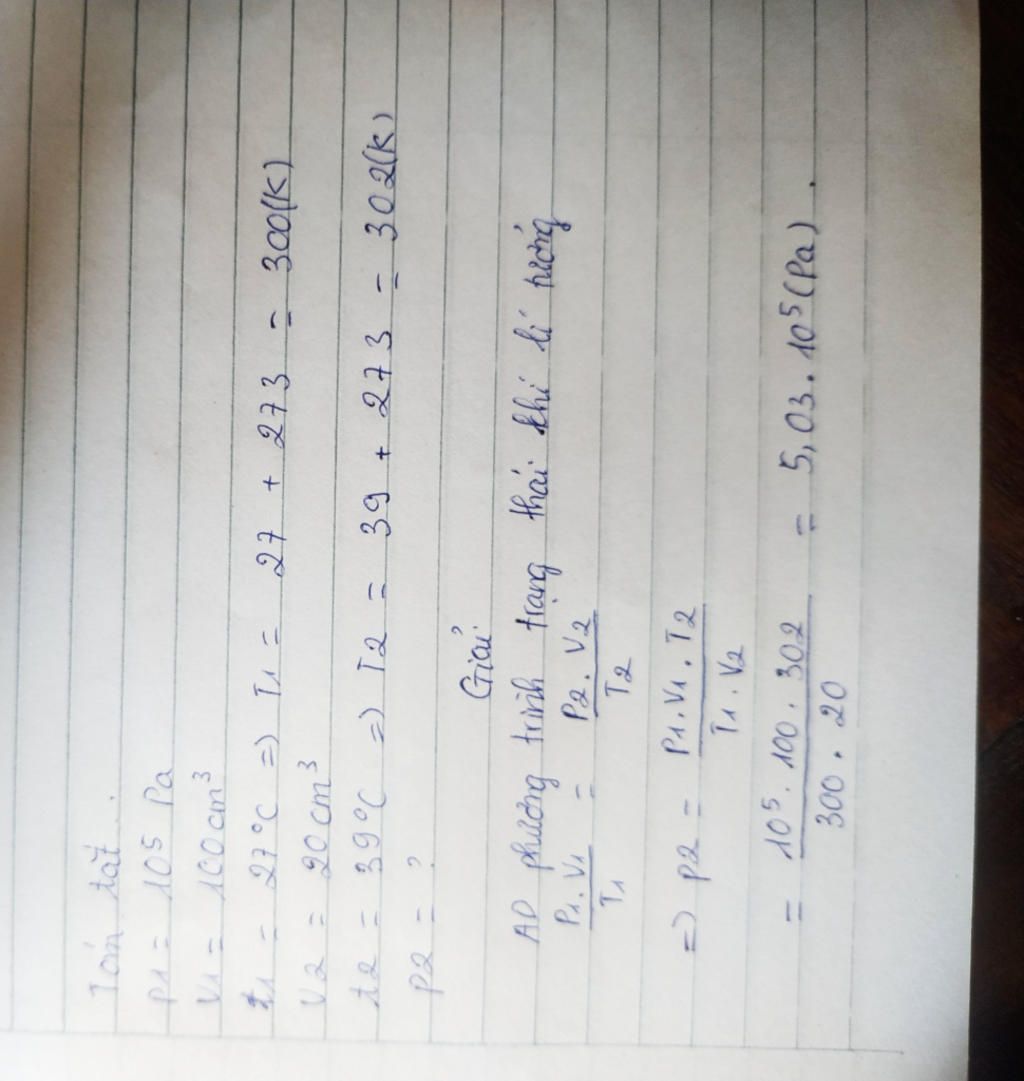 Tóm tắt.
P1 = 10⁵ Pa
V1 = 100cm³
t1 = 27°C => T1 = 27 + 273 = 300(K)
V2 = 20cm³
t2 = 39°C => T2 = 39 + 273 = 302(K)
P2 = ?
Giải
AD phương trình trạng thái khí lí tưởng
P1.V1 / T1 = P2.V2 / T2
=> P2 = P1.V1.T2 / T1.V2
= 10⁵.100.302 / 300.20 = 5,03.10⁵(Pa).